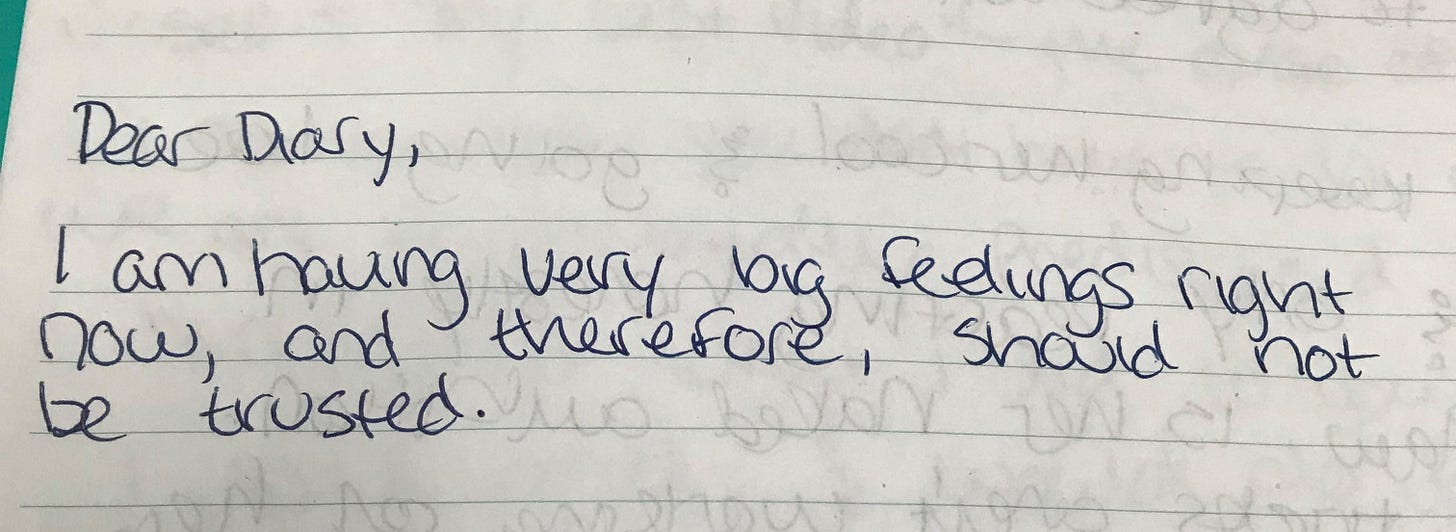 Dear Diary,
I am having very big feelings right
now, and therefore, should not
be trusted.